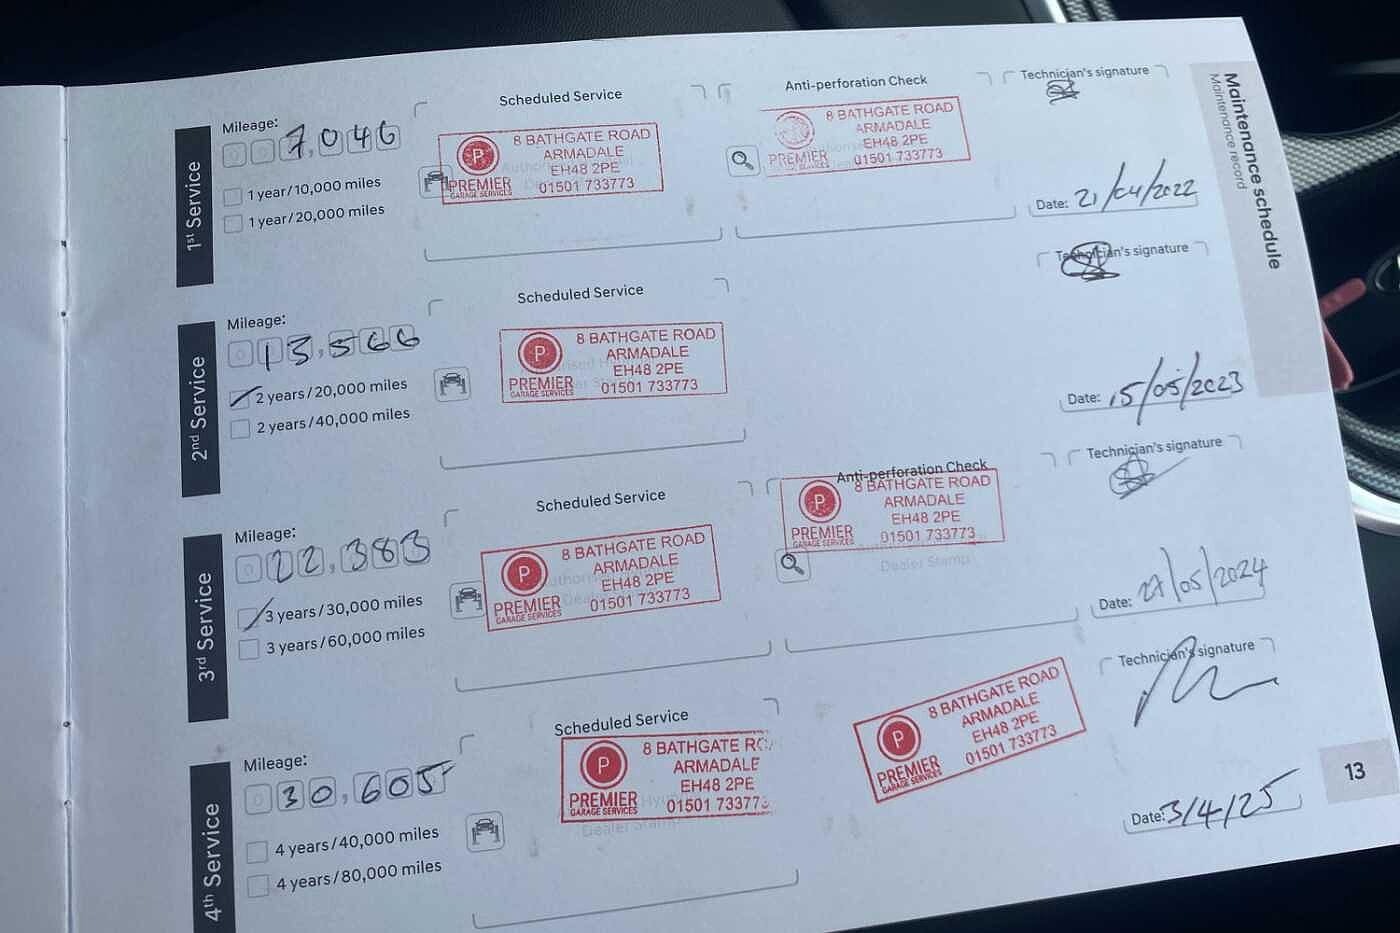 Maintenance schedule
Maintenance record
1st Service
Mileage:
7,046
1 year/10,000 miles
1 year/20,000 miles
Scheduled Service
8 BATHGATE ROAD
ARMADALE
EH48 2PE
01501 733773
P
PREMIER
GARAGE SERVICES
Anti-perforation Check
8 BATHGATE ROAD
ARMADALE
EH48 2PE
01501 733773
PREMIER
Technician's signature
Date: 21/04/2022
2nd Service
Mileage:
0 13,566
2 years/20,000 miles
2 years/40,000 miles
Scheduled Service
8 BATHGATE ROAD
ARMADALE
EH48 2PE
01501 733773
P
PREMIER
GARAGE SERVICES
Technician's signature
Date: 15/05/2023
3rd Service
Mileage:
0 22,383
3 years/30,000 miles
3 years/60,000 miles
Scheduled Service
8 BATHGATE ROAD
ARMADALE
EH48 2PE
01501 733773
P
PREMIER
GARAGE SERVICES
Anti-perforation Check
8 BATHGATE ROAD
ARMADALE
EH48 2PE
01501 733773
P
PREMIER
GARAGE SERVICES
Dealer Stamp
Technician's signature
Date: 27/05/2024
4th Service
Mileage:
0 30,605
4 years/40,000 miles
4 years/80,000 miles
Scheduled Service
8 BATHGATE
ARMADALE
EH48 2PE
01501 733773
P
PREMIER
GARAGE SERVICES
Dealer Stamp
8 BATHGATE ROAD
ARMADALE
EH48 2PE
01501 733773
P
PREMIER
GARAGE SERVICES
Technician's signature
Date: 3/4/25
13